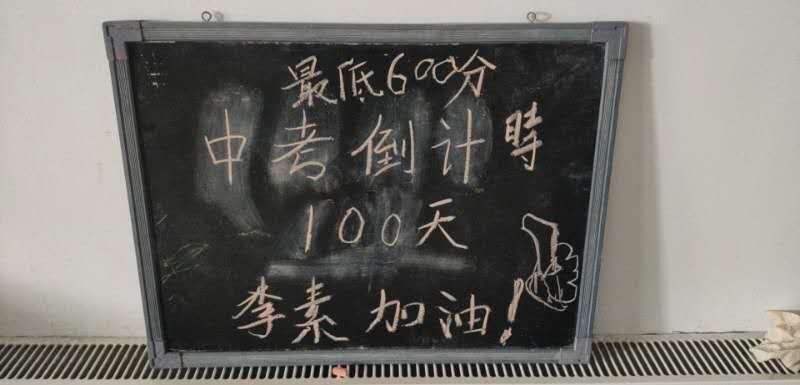 最低600分
中考倒计时
100天
李素加油!